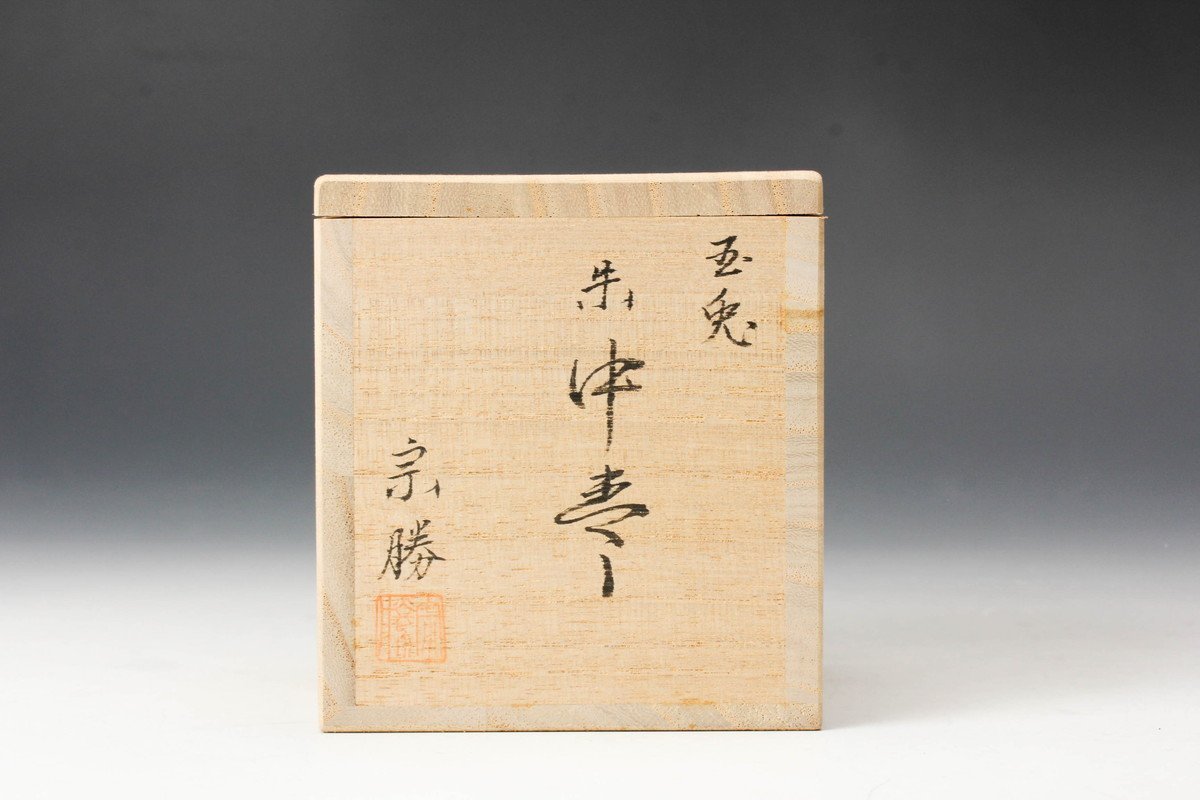 玉兎
朱中棗
宗勝